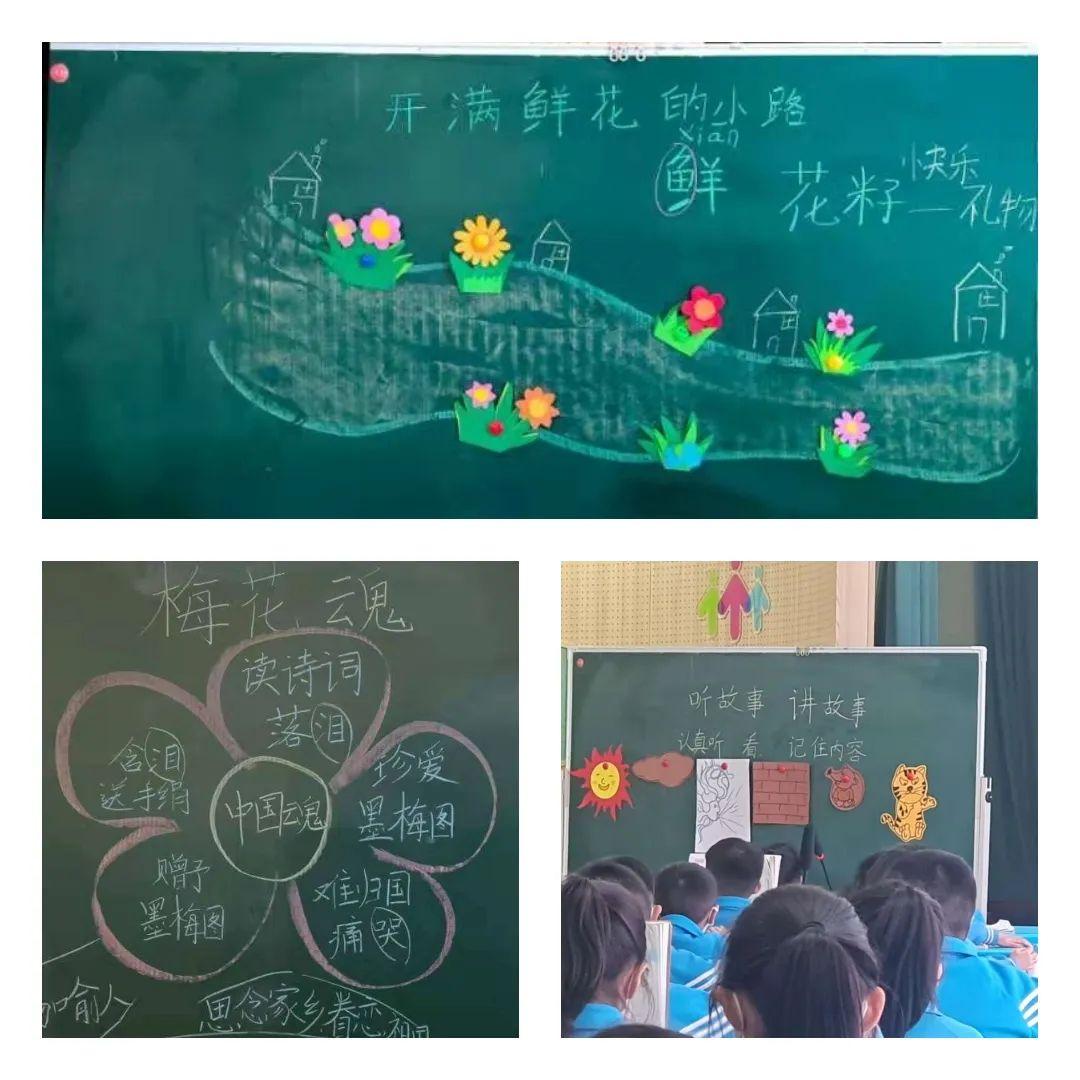 开满鲜花的小路
xiān
鲜
花籽—快乐
礼物
梅花魂
读诗词
落泪
含泪
送手绢
珍爱
墨梅图
中国魂
赠予
墨梅图
难归国
痛哭
思念家乡眷恋祖国
听故事 讲故事
认真听 看 记住内容